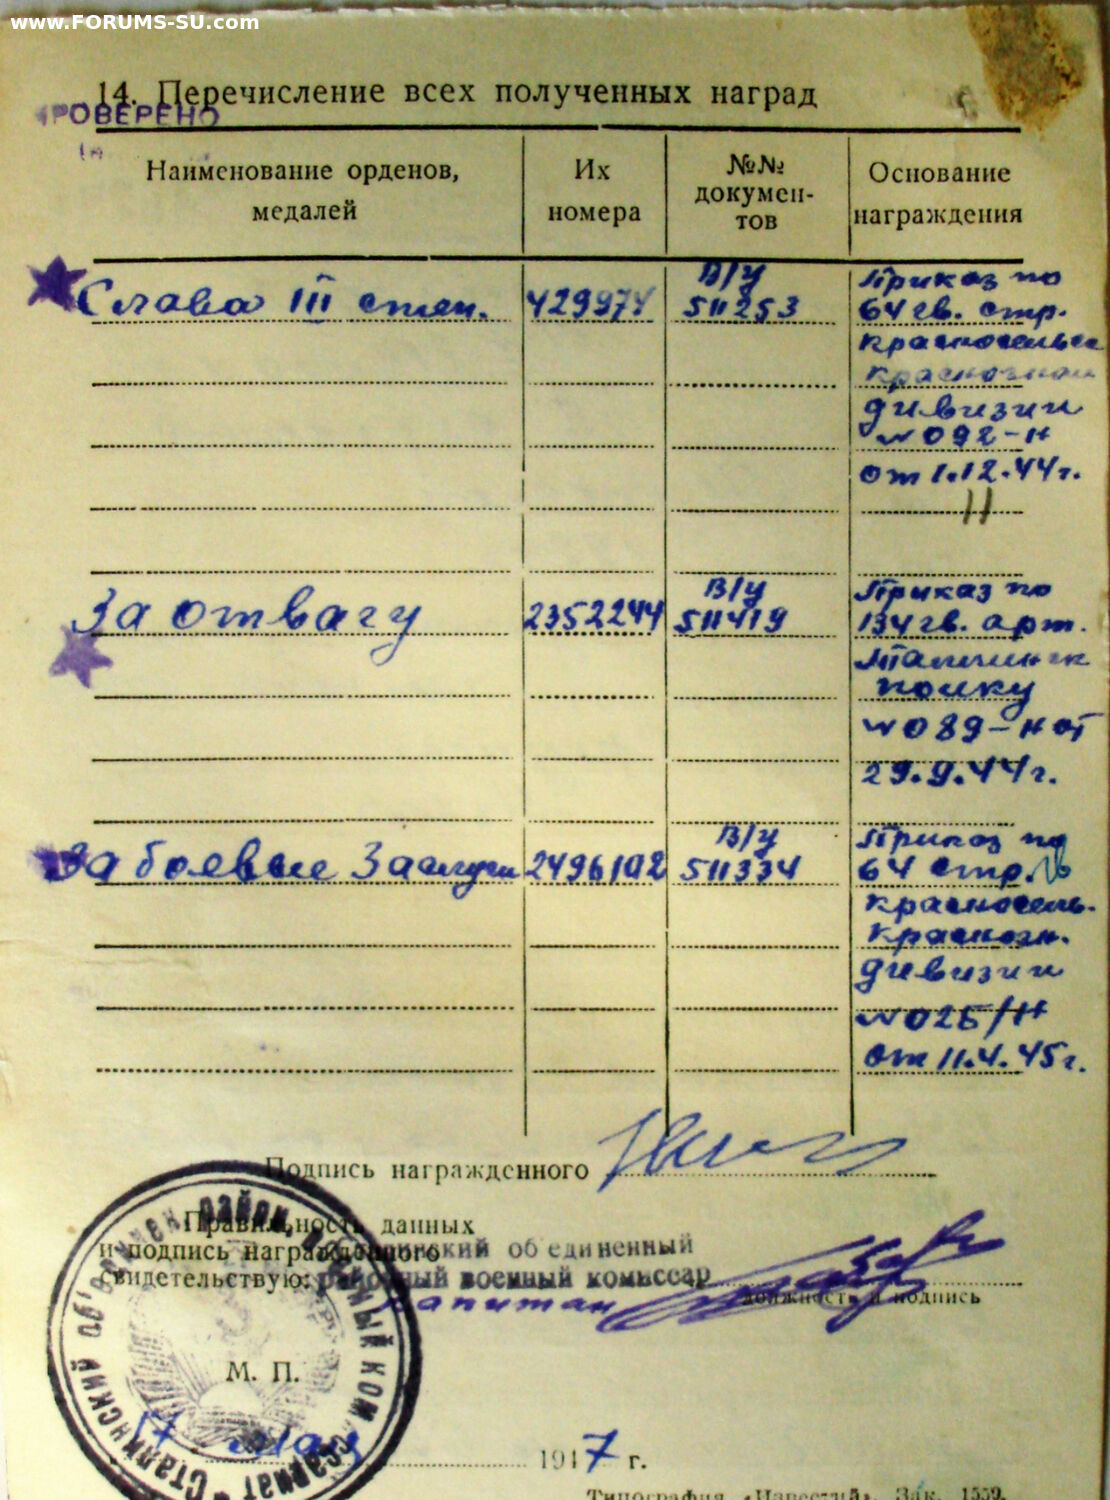 www.FORUMS-SU.com
14. Перечисление всех полученных наград
РОВЕРЕНО
Наименование орденов, медалей
Их номера
№№ докумен-тов
Основание награждения
Слава III степ.
429974
В/у
511253
Приказ по
64 гв. стр.
красносельск
краснознам
дивизии
№ 092-н
от 1.12.44г.
11
За отвагу
2352244
В/у
511419
Приказ по
134 гв. арт.
Таллинск
полку
№ 089-н от
29.9.44г.
За боевые Заслуги
2496102
В/у
511334
Приказ по
64 стр. гв
красносель.
краснозн.
дивизии
№ 025/н
от 11.4.45г.
Подпись награжденного
Правильность данных
и подпись награжденного объединенный
свидетельствую: районный военный комиссар
капитан
должность и подпись
Сталинский об'единен. район. военный комиссариат
М. П.
17 мая 1947 г.
Типография «Известий». Зак. 1559.